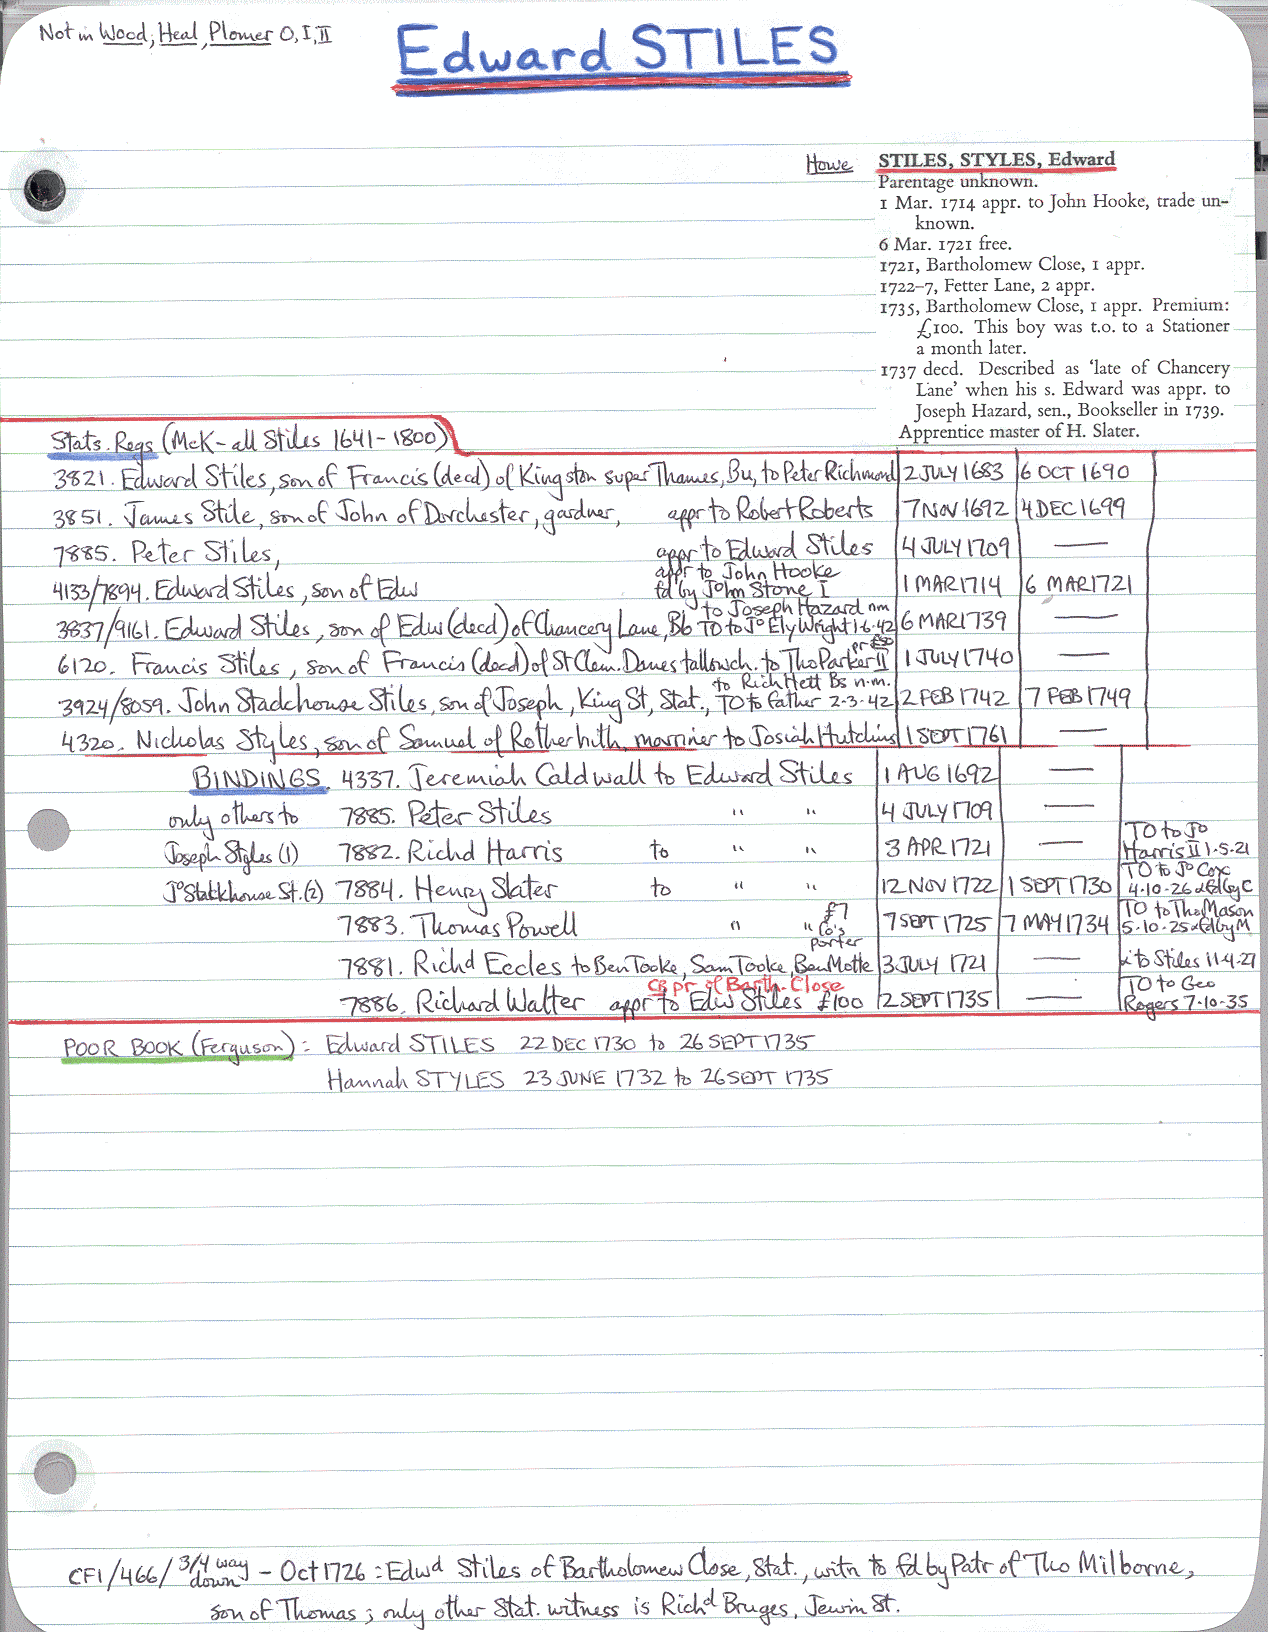 Not in Wood, Heal, Plomer O, I, II
Edward STILES
Howe
STILES, STYLES, Edward
Parentage unknown.
1 Mar. 1714 appr. to John Hooke, trade un-
known.
6 Mar. 1721 free.
1721, Bartholomew Close, 1 appr.
1722–7, Fetter Lane, 2 appr.
1735, Bartholomew Close, 1 appr. Premium:
£100. This boy was t.o. to a Stationer
a month later.
1737 decd. Described as 'late of Chancery
Lane' when his s. Edward was appr. to
Joseph Hazard, sen., Bookseller in 1739.
Apprentice master of H. Slater.
Stats. Regs (McK - all Stiles 1641-1800)
3821. Edward Stiles, son of Francis (decd) of Kingston super Thames, Bu, to Peter Richmond 2 JULY 1683 6 OCT 1690
3851. James Stile, son of John of Dorchester, gardner, appr to Robert Roberts 7 NOV 1692 4 DEC 1699
7885. Peter Stiles, appr to Edward Stiles 4 JULY 1709 —
appr to John Hooke
4133/7894. Edward Stiles, son of Edw fd by John Stone I 1 MAR 1714 6 MAR 1721
to Joseph Hazard nm
3837/9161. Edward Stiles, son of Edw (decd) of Chancery Lane, Bb TO to Jo Ely Wright 1-6-42 6 MAR 1739 —
pr £20
6120. Francis Stiles, son of Francis (decd) of St Clem. Danes tallowch. to Tho Parker II 1 JULY 1740 —
to Rich Hett Bs n.m.
3924/8059. John Stackhouse Stiles, son of Joseph, King St, Stat., TO to father 2-3-42 2 FEB 1742 7 FEB 1749
4320. Nicholas Styles, son of Samuel of Rotherhith, marriner to Josiah Hutchins 1 SEPT 1761 —
BINDINGS. 4337. Jeremiah Caldwall to Edward Stiles 1 AUG 1692 —
only others to 7885. Peter Stiles " " 4 JULY 1709 —
Joseph Styles (1) 7882. Richd Harris to " " 3 APR 1721 — TO to Jo Harris II 1-5-21
Jo Stackhouse St. (2) 7884. Henry Slater to " " 12 NOV 1722 1 SEPT 1730 TO to Jo Cox 4-10-26 & fd by C
7883. Thomas Powell " " £7 Co's porter 7 SEPT 1725 7 MAY 1734 TO to Tho Mason 5-10-25 & fd by M
7881. Richd Eccles to Ben Tooke, Sam Tooke, Ben Motte 3 JULY 1721 — to Stiles 11-4-27
CB pr of Barth. Close
7886. Richard Walter appr to Edw Stiles £100 2 SEPT 1735 — TO to Geo Rogers 7-10-35
POOR BOOK (Ferguson): Edward STILES 22 DEC 1730 to 26 SEPT 1735
Hannah STYLES 23 JUNE 1732 to 26 SEPT 1735
CF1/466/ 3/4 way down - Oct 1726: Edwd Stiles of Bartholomew Close, Stat., witn to fd by Patr of Tho Milborne,
son of Thomas; only other Stat. witness is Richd Bruges, Jewin St.